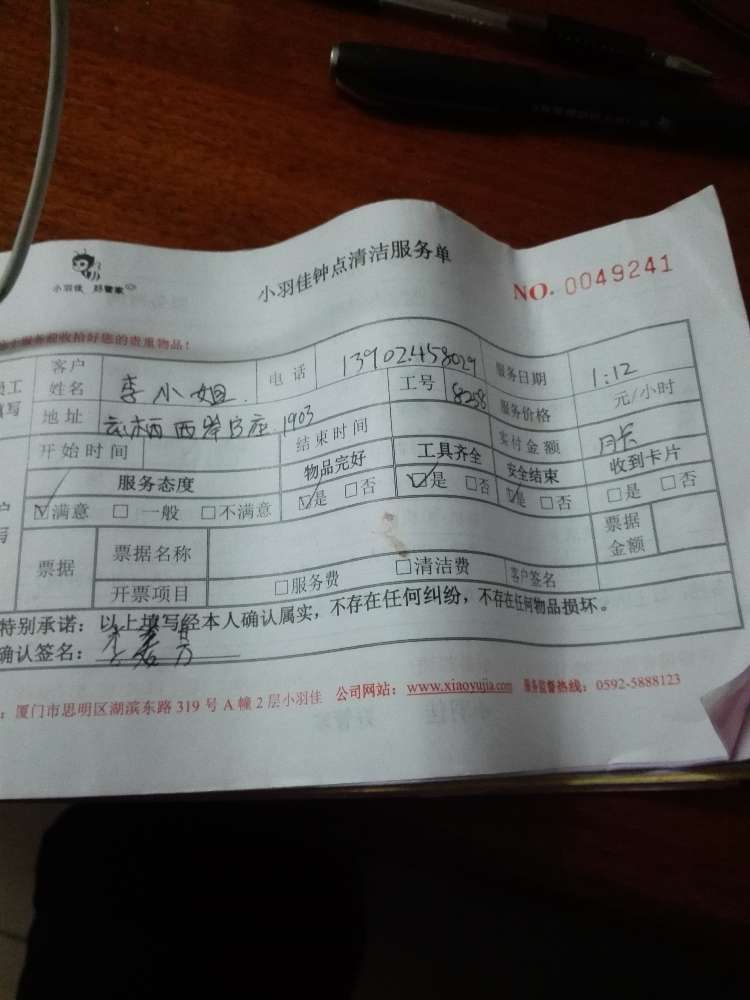 小羽佳 好管家
小羽佳钟点清洁服务单
NO. 0049241
服务前收拾好您的贵重物品!
客户姓名 李小姐 电话 13902458029 服务日期 1:12
地址 云栖西岸 座 1903 工号 8258 服务价格 元/小时
开始时间 结束时间 实付金额 月卡
服务态度 物品完好 工具齐全 安全结束 收到卡片
☑满意 □一般 □不满意 ☑是 □否 ☑是 □否 ☑是 □否 □是 □否
票据 票据名称 票据金额
开票项目 □服务费 □清洁费 客户签名
特别承诺：以上填写经本人确认属实，不存在任何纠纷，不存在任何物品损坏。
确认签名：
：厦门市思明区湖滨东路319号A幢2层小羽佳 公司网站：www.xiaoyujia.com 服务监督热线：0592-5888123